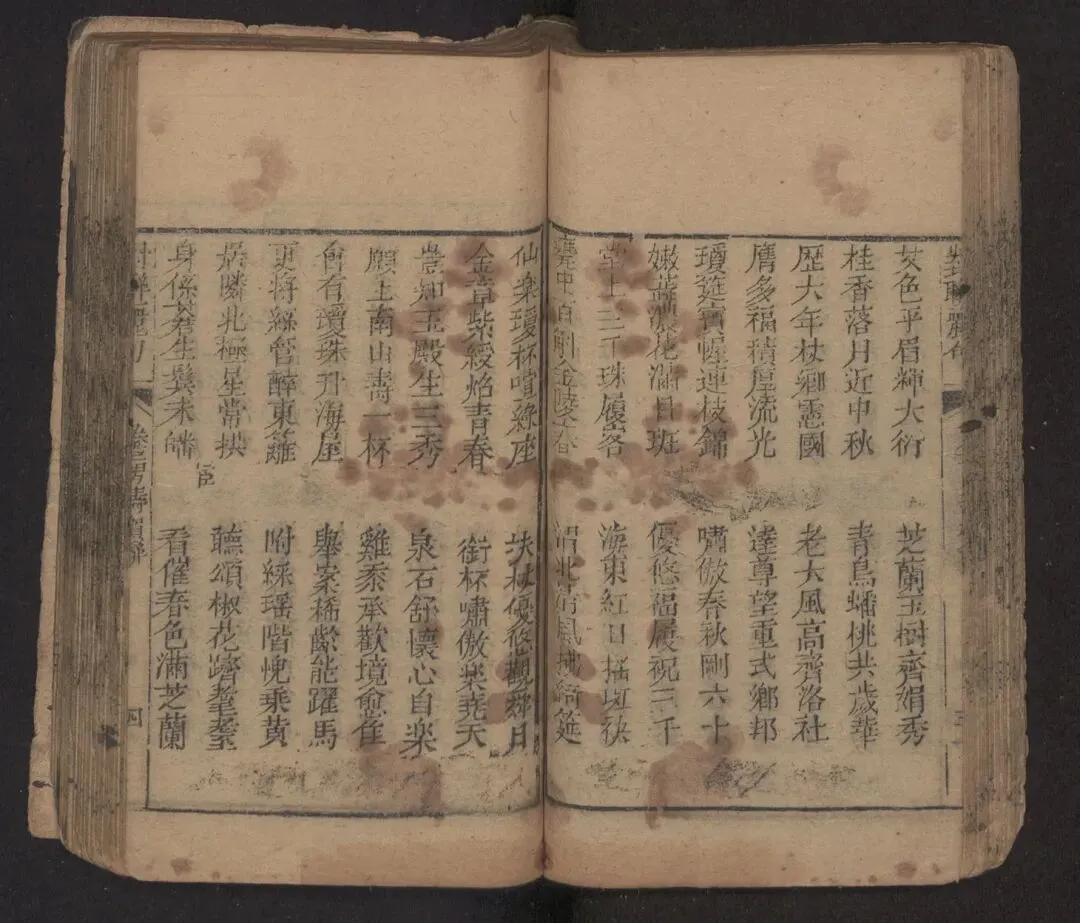 艾色平眉輝大衍
芝蘭玉樹齊娟秀
桂香落月近中秋
青鳥蟠桃共歲華
歴大年杖鄉憲國
老大風高齊洛社
膺多福積厚流光
達尊望重式鄉邦
瓊筵寳幄連枝錦
嘯傲春秋剛六十
嫩蕋濃花滿目班
優悠福履祝三千
堂上三千珠履客
海東紅日揺斑袂
甕中百斛金陵春
沼北清風拂綺筵
仙樂瓊杯噴緑座
扶杖優悠觀舜日
金章紫綬焰青春
銜杯嘯傲樂堯天
豈知玉殿生三秀
泉石舒懷心自樂
願上南山壽一杯
雞黍承歡境愈佳
會有瓊珠升海屋
舉案稀齡能躍馬
更將絲管醉東籬
咐綵瑶階愧乗黄
聽頌椒花躋耄耋
身係蒼生髮未皤
看催春色滿芝蘭
四